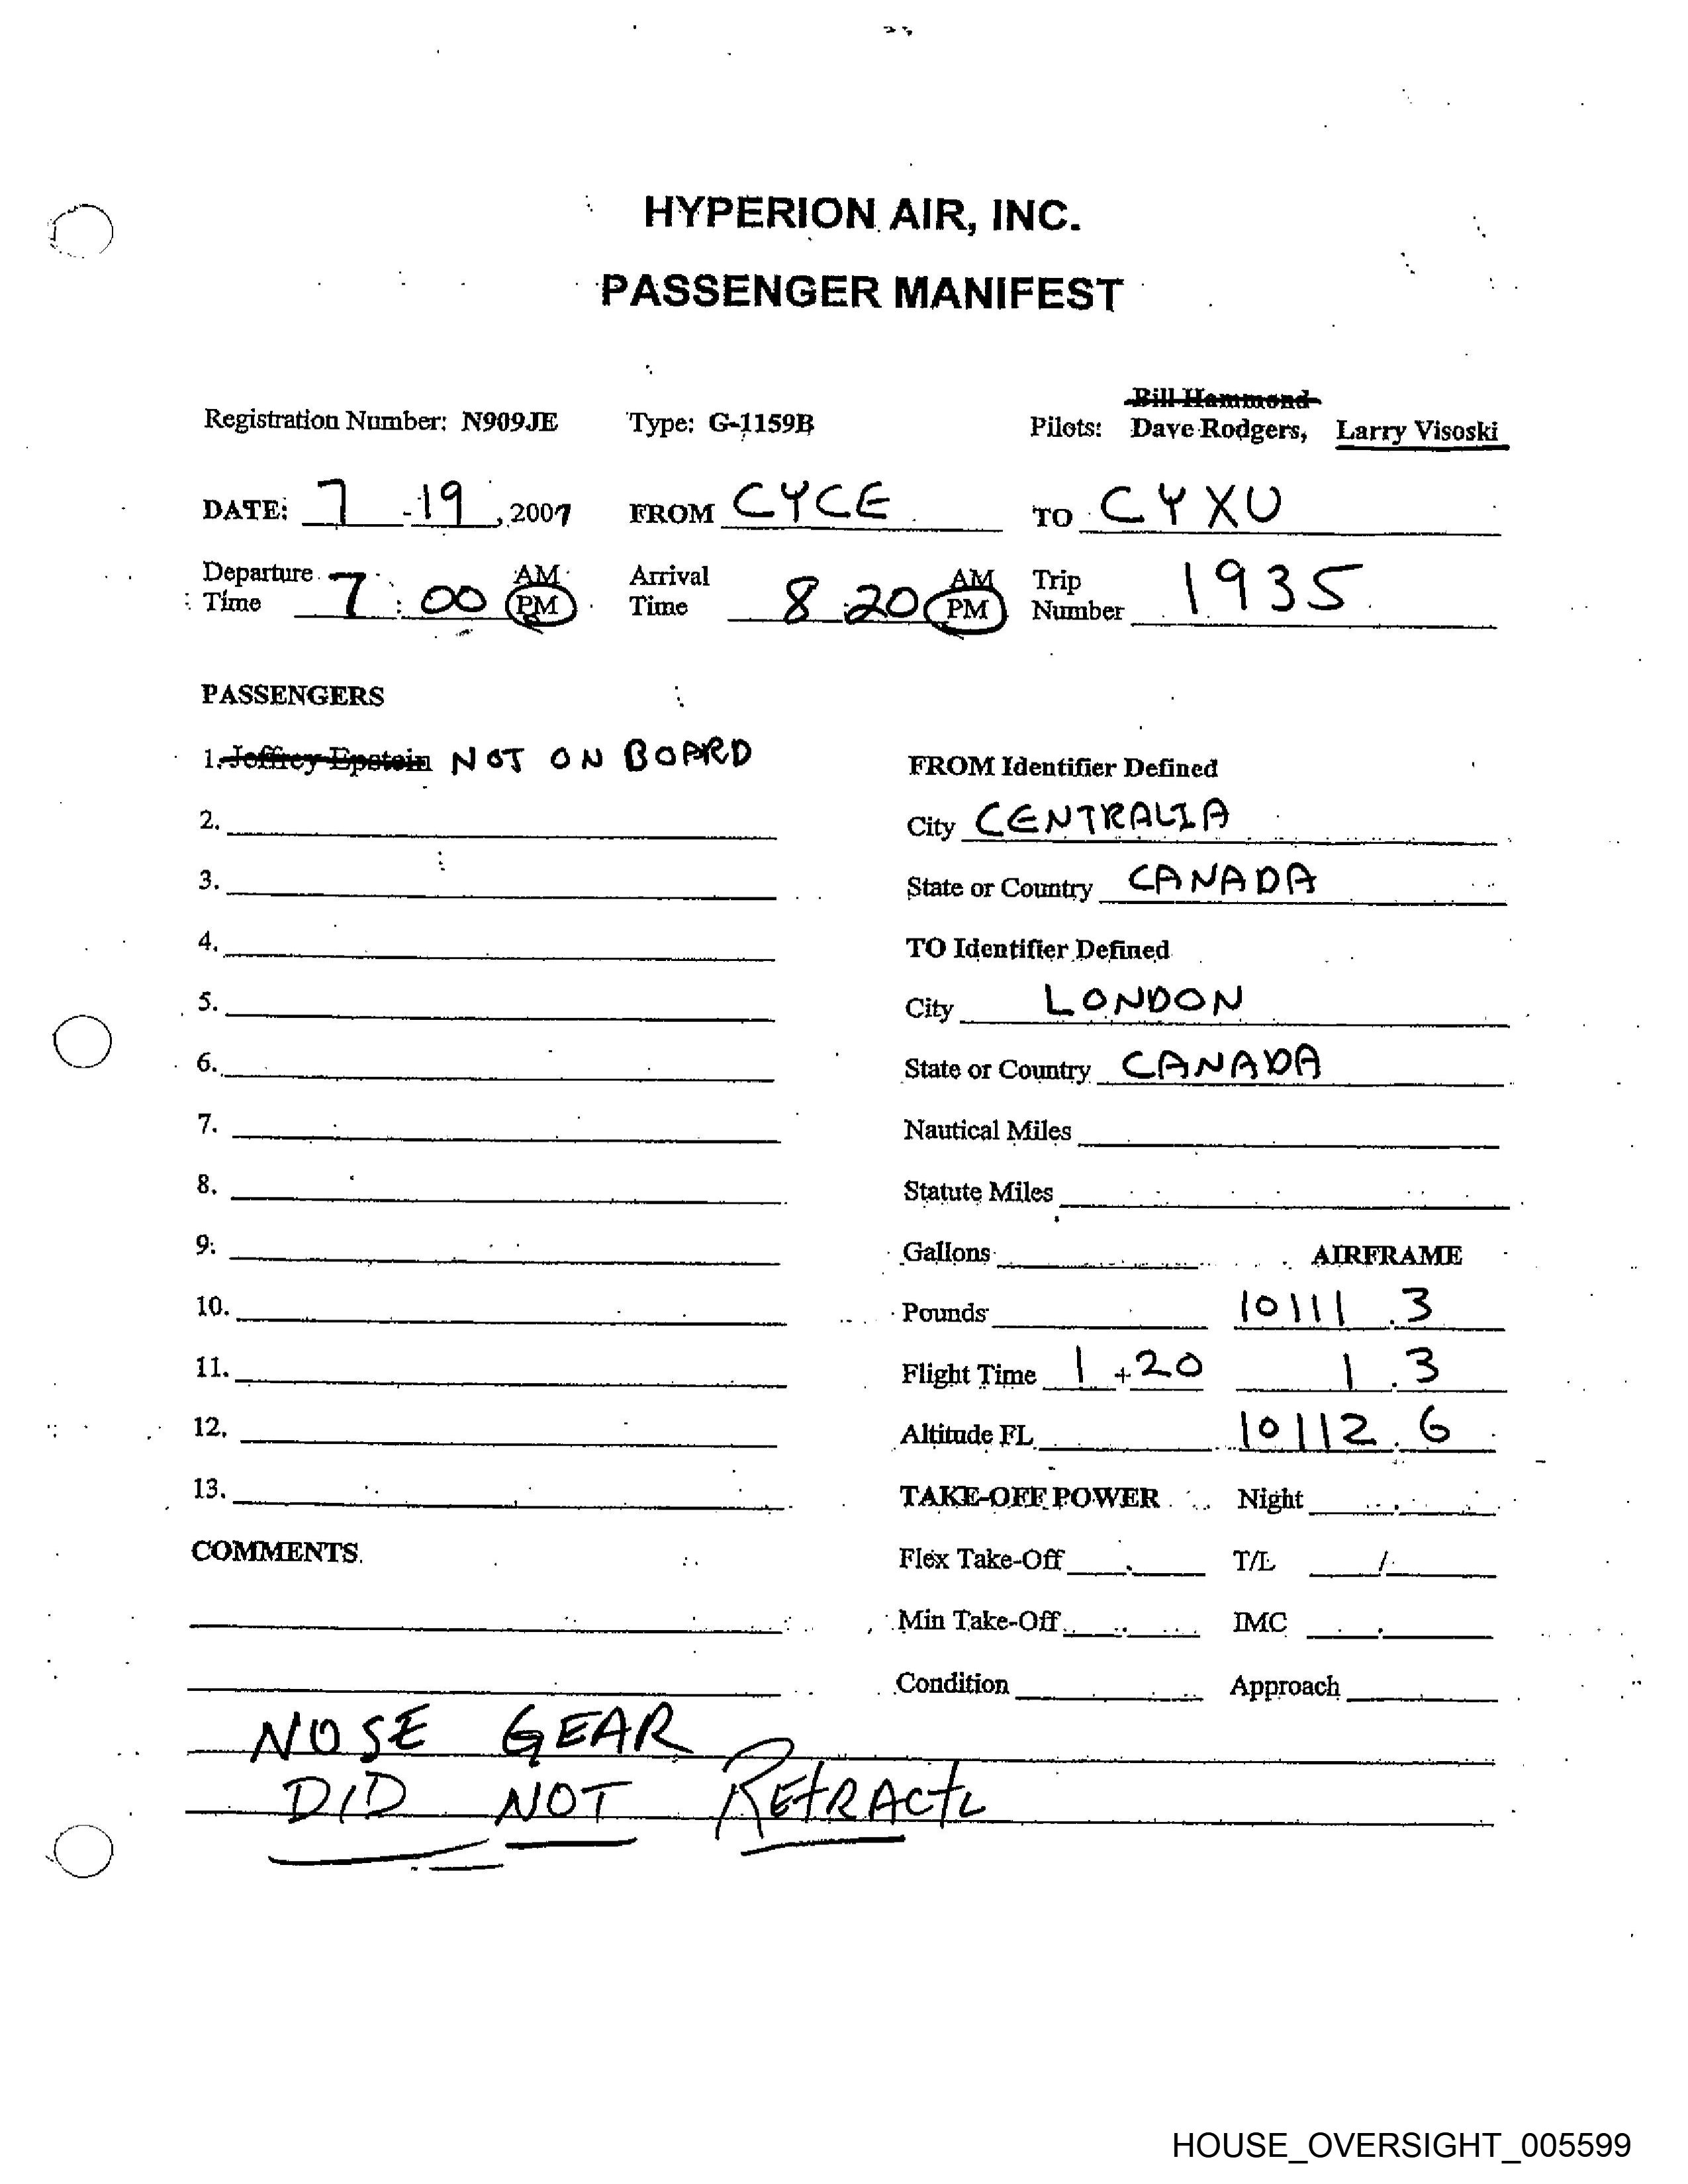 HYPERION AIR, INC.
PASSENGER MANIFEST
Bill Hammond
Registration Number: N909JE Type: G-1159B Pilots: Dave Rodgers, Larry Visoski
DATE: 7 - 19, 2007 FROM CYCE TO CYXU
Departure Time 7:00 AM PM Arrival Time 8:20 AM PM Trip Number 1935
PASSENGERS
1. Jeffrey Epstein NOT ON BOARD
FROM Identifier Defined
2.
City CENTRALIA
3.
State or Country CANADA
4.
TO Identifier Defined
5.
City LONDON
6.
State or Country CANADA
7.
Nautical Miles
8.
Statute Miles
9.
Gallons AIRFRAME
10.
Pounds 10111.3
11.
Flight Time 1+20 1.3
12.
Altitude FL 10112.6
13.
TAKE-OFF POWER Night .
COMMENTS
Flex Take-Off . T/L /
Min Take-Off . IMC .
Condition Approach
NOSE GEAR
DID NOT RETRACT
HOUSE_OVERSIGHT_005599